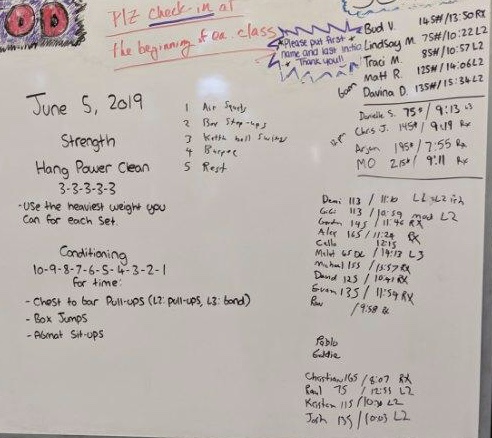 Plz check-in at
the beginning of ea. class
*Please put first
name and last initial
Thank you!!
Bud V. 145#/13:50 RX
Lindsay M. 75#/10:22 L2
Traci M. 85#/10:57 L2
Matt R. 125#/14:06 L2
Davina D. 135#/15:34 L2
noon
Danielle S. 75#/9:13
Chris J. 145#/9:19 Rx
Arjun 195#/7:55 Rx
MO 215#/9:11 Rx
June 5, 2019
Strength
Hang Power Clean
3-3-3-3-3
-Use the heaviest weight you
Can for each set.
Conditioning
10-9-8-7-6-5-4-3-2-1
For time:
- Chest to bar Pull-ups (L2: pull-ups, L3: band)
- Box Jumps
- Abmat Sit-ups
1 Air Squats
2 Box Step-ups
3 Kettle bell Swings
4 Burpee
5 Rest
Demi 113 / 11:10 L2
GiGi 113 / 10:59 mod L2
Gordon 145 / 11:46 RX
Alex 165 / 11:24 RX
12:15
65 / 14:13 L3
Michael 155 / 13:57 Rx
David 125 / 10:41 Rx
135 / 11:54 RX
/ 9:58 Rx
Pablo
Eddie
Christian 165 / 8:07 RX
Paul 75 / 12:55 L2
Kristen 115 / 10:30 L2
Josh 135 / 10:03 L2